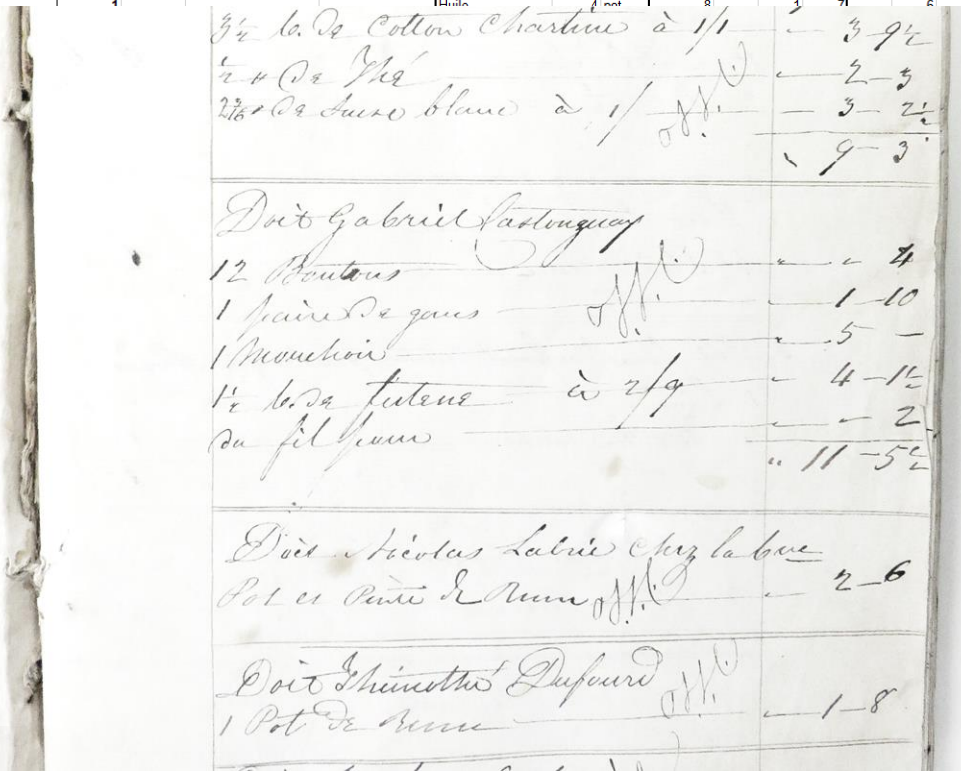 1 Huile 4 pot 8 1 7 6
3½ v. de Cotton à 1/1 " 3 9½
½ " de Thé " 2 3
de Sucre blanc à 1/ — 3 2½
" 9 3
Doit Gabriel Castonguay
12 Boutons " " 4
1 paire de gans " 1 10
1 Mouchoir " 5 —
1½ v. de futene à 2/9 " 4 1½
du fil pour " " 2
" 11 5½
Doit Nicolas Labrie chez
Pot et Pinte de Rum " 2 6
Doit Thimothé Dufourd
1 Pot de Rum " 1 8